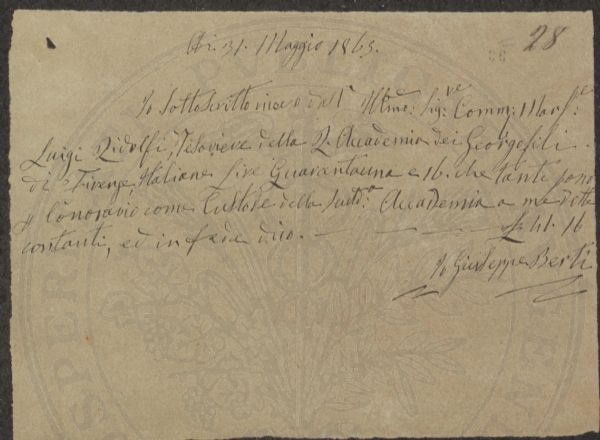 28
Adì 31. Maggio 1863.
Io Sottoscritto ricevo dall' Illmo: Sigre: Comm: March:e
Luigi Ridolfi, Tesoriere della R. Accademia dei Georgofili
di Firenze, Italiane Lire Quarantauna e 16. che tante sono
p l'onorario come Custode della Sudda Accademia a me dette
contanti, ed in fede dico. — £ 41. 16
Io Giuseppe Berti